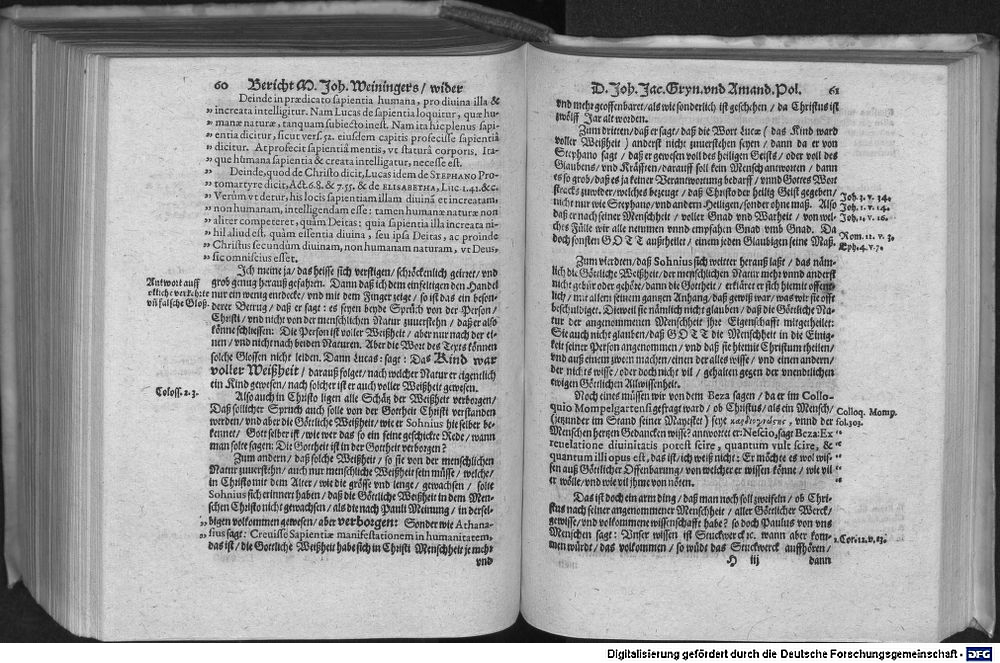 60 Bericht M. Joh. Weiningers / wider
Deinde in prædicato sapientia humana, pro divina illa &
„ increata intelligitur. Nam Lucas de sapientia loquitur, quæ hu-
„ manæ naturæ, tanquam subiecto inest. Nam ita hic plenus sapi-
„ entia dicitur, sicut vers. 52. eiusdem capitis profecisse sapientiâ
„ dicitur. At profecit sapientiâ mentis, vt staturâ corporis. Ita-
„ que humana sapientia & creata intelligatur, necesse est.
„ Deinde, quod de Christo dicit, Lucas idem de STEPHANO Pro-
„ tomartyre dicit, Act. 6.8. & 7.55. & de ELISABETHA, Luc. 1.41. &c.
„ Verùm vt detur, his locis sapientiam illam divinã et increatam,
„ non humanam, intelligendam esse: tamen humanæ naturæ non
„ aliter competeret, quàm Deitas: quia sapientia illa increata ni-
„ hil aliud est, quàm essentia divina, seu ipsa Deitas, ac proinde
„ Christus secundùm divinam, non humanam naturam, vt Deus,
„ sic omniscius esset.
Ich meine ja / das heisse sich verstigen / schröckenlich geirret / vnd
Antwort auff
grob genug herauß gefahren. Dann daß ich dem einfeltigen den Handel
etliche verkehrte
nur ein wenig entdecke / vnd mit dem Finger zeige / so ist das ein beson-
vñ falsche Gloß.
derer Betrug / daß er sagt: es seyen beyde Sprüch von der Person /
Christi / vnd nicht von der menschlichen Natur zuuerstehn / daß er also
könne schliessen: Die Person ist voller Weißheit / aber nur nach der ei-
nen / vnd nicht nach beiden Naturen. Aber die Wort des Texts können
solche Glossen nicht leiden. Dann Lucas: sagt: Das Kind war
voller Weißheit / darauß folget / nach welcher Natur er eigentlich
ein Kind gewesen / nach solcher ist er auch voller Weißheit gewesen.
Coloss. 2.3.
Also auch in Christo ligen alle Schätz der Weißheit verborgen /
Daß solcher Spruch auch solle von der Gottheit Christi verstanden
werden / vnd aber die Göttliche Weißheit / wie er Sohnius hie selber be-
kennet / Gott selber ist / wie wer das so ein feine geschickte Rede / wann
man solte sagen: Die Gottheit ist in der Gottheit verborgen?
Zum andern / daß solche Weißheit / so sie von der menschlichen
Natur zuuerstehn / auch nur menschliche Weißheit sein müsse / welche /
in Christo mit dem Alter / wie die grösse vnd lenge / gewachsen / solte
Sohnius sich erinnert haben / daß die Göttliche Weißheit in dem Men-
schen Christo nicht gewachsen / als die nach Pauli Meinung / in dersel-
„ bigen volkommen gewesen / aber verborgen: Sonder wie Athana-
„ sius sagt: Crevisse Sapientiæ manifestationem in humanitatem,
das ist / die Göttliche Weißheit habe sich in Christi Menschheit je mehr
vnd
D. Joh. Jac. Gryn. vnd Amand. Pol. 61
vnd mehr geoffenbaret / als wie sonderlich ist geschehen / da Christus ist
zwölff Jar alt worden.
Zum dritten / daß er sagt / daß die Wort Lucæ ( das Kind ward
voller Weißheit ) anderst nicht zuuerstehen seyen / dann da er von
Stephano sagt / daß er gewesen voll des heiligen Geists / oder voll des
Glaubens / vnd Kräfften / darauff soll kein Mensch antworten / dann
es so grob / daß es ja keiner Verantwortung bedarff / vnnd Gottes Wort
stracks zuwider / welches bezeugt / daß Christo der heilig Geist gegeben /
nicht nur wie Stephano / vnd andern Heiligen / sonder ohne maß. Also
daß er nach seiner Menschheit / voller Gnad vnd Warheit / von wel-
ches Fülle wir alle nemmen vnnd empfahen Gnad vmb Gnad. Da
doch sonsten GOTT außtheilet / einem jeden Glaubigen seine Maß.
Joh. 3. v. 34.
Joh. 1. v. 14.
Joh. 1. v. 16.
Rom. 12. v. 3.
Eph. 4. v. 7.
Zum vierdten / daß Sohnius sich weitter herauß laßt / das näm-
lich die Göttliche Weißheit / der menschlichen Natur mehr vnnd anderst
nicht gebür oder gehöre / dann die Gottheit / erkläret er sich hiemit offent-
lich / mit allem seinem gantzen Anhang / daß gewiß war / was wir sie offt
beschuldiget. Dieweil sie nämlich nicht glauben / daß die Göttliche Na-
tur der angenommenen Menschheit ihre Eigenschafft mitgetheilet:
Sie auch nicht glauben / daß GOTT die Menschheit in die Einig-
keit seiner Person angenommen / vnd daß sie hiemit Christum theilen /
vnd auß einem zwen machen / einen der alles wisse / vnd einen andern /
der nichts wisse / oder doch nicht vil / gehalten gegen der vnendtlichen
ewigen Göttlichen Allwissenheit.
Noch eines müssen wir von dem Beza sagen / da er im Collo-
quio Mompelgartensi gefragt ward / ob Christus / als ein Mensch /
Colloq. Momp.
(jetzunder im Stand seiner Majestet) seye καρδιογνώςης, vnnd der
fol. 303.
Menschen hertzen Gedancken wisse? antwortet er: Nescio, sagt Beza: Ex
revelatione divinitatis potest scire, quantum vult scire, &
quantum illi opus est, das ist / ich weiß nicht: Er möchte es wol wis-
sen auß Göttlicher Offenbarung / von welcher er wissen könne / wie vil
er wölle / vnd wie vil ihme von nöten.
Das ist doch ein arm ding / daß man noch soll zweifeln / ob Chri-
stus nach seiner angenommener Menschheit / aller Göttlicher Werck /
gewisse / vnd volkommene wissenschafft habe? so doch Paulus von vns
Menschen sagt: Vnser wissen ist Stuckwerck ꝛc. wann aber kom-
men würdt / das volkommen / so würdt das Stuckwerck auffhören /
H iij dann